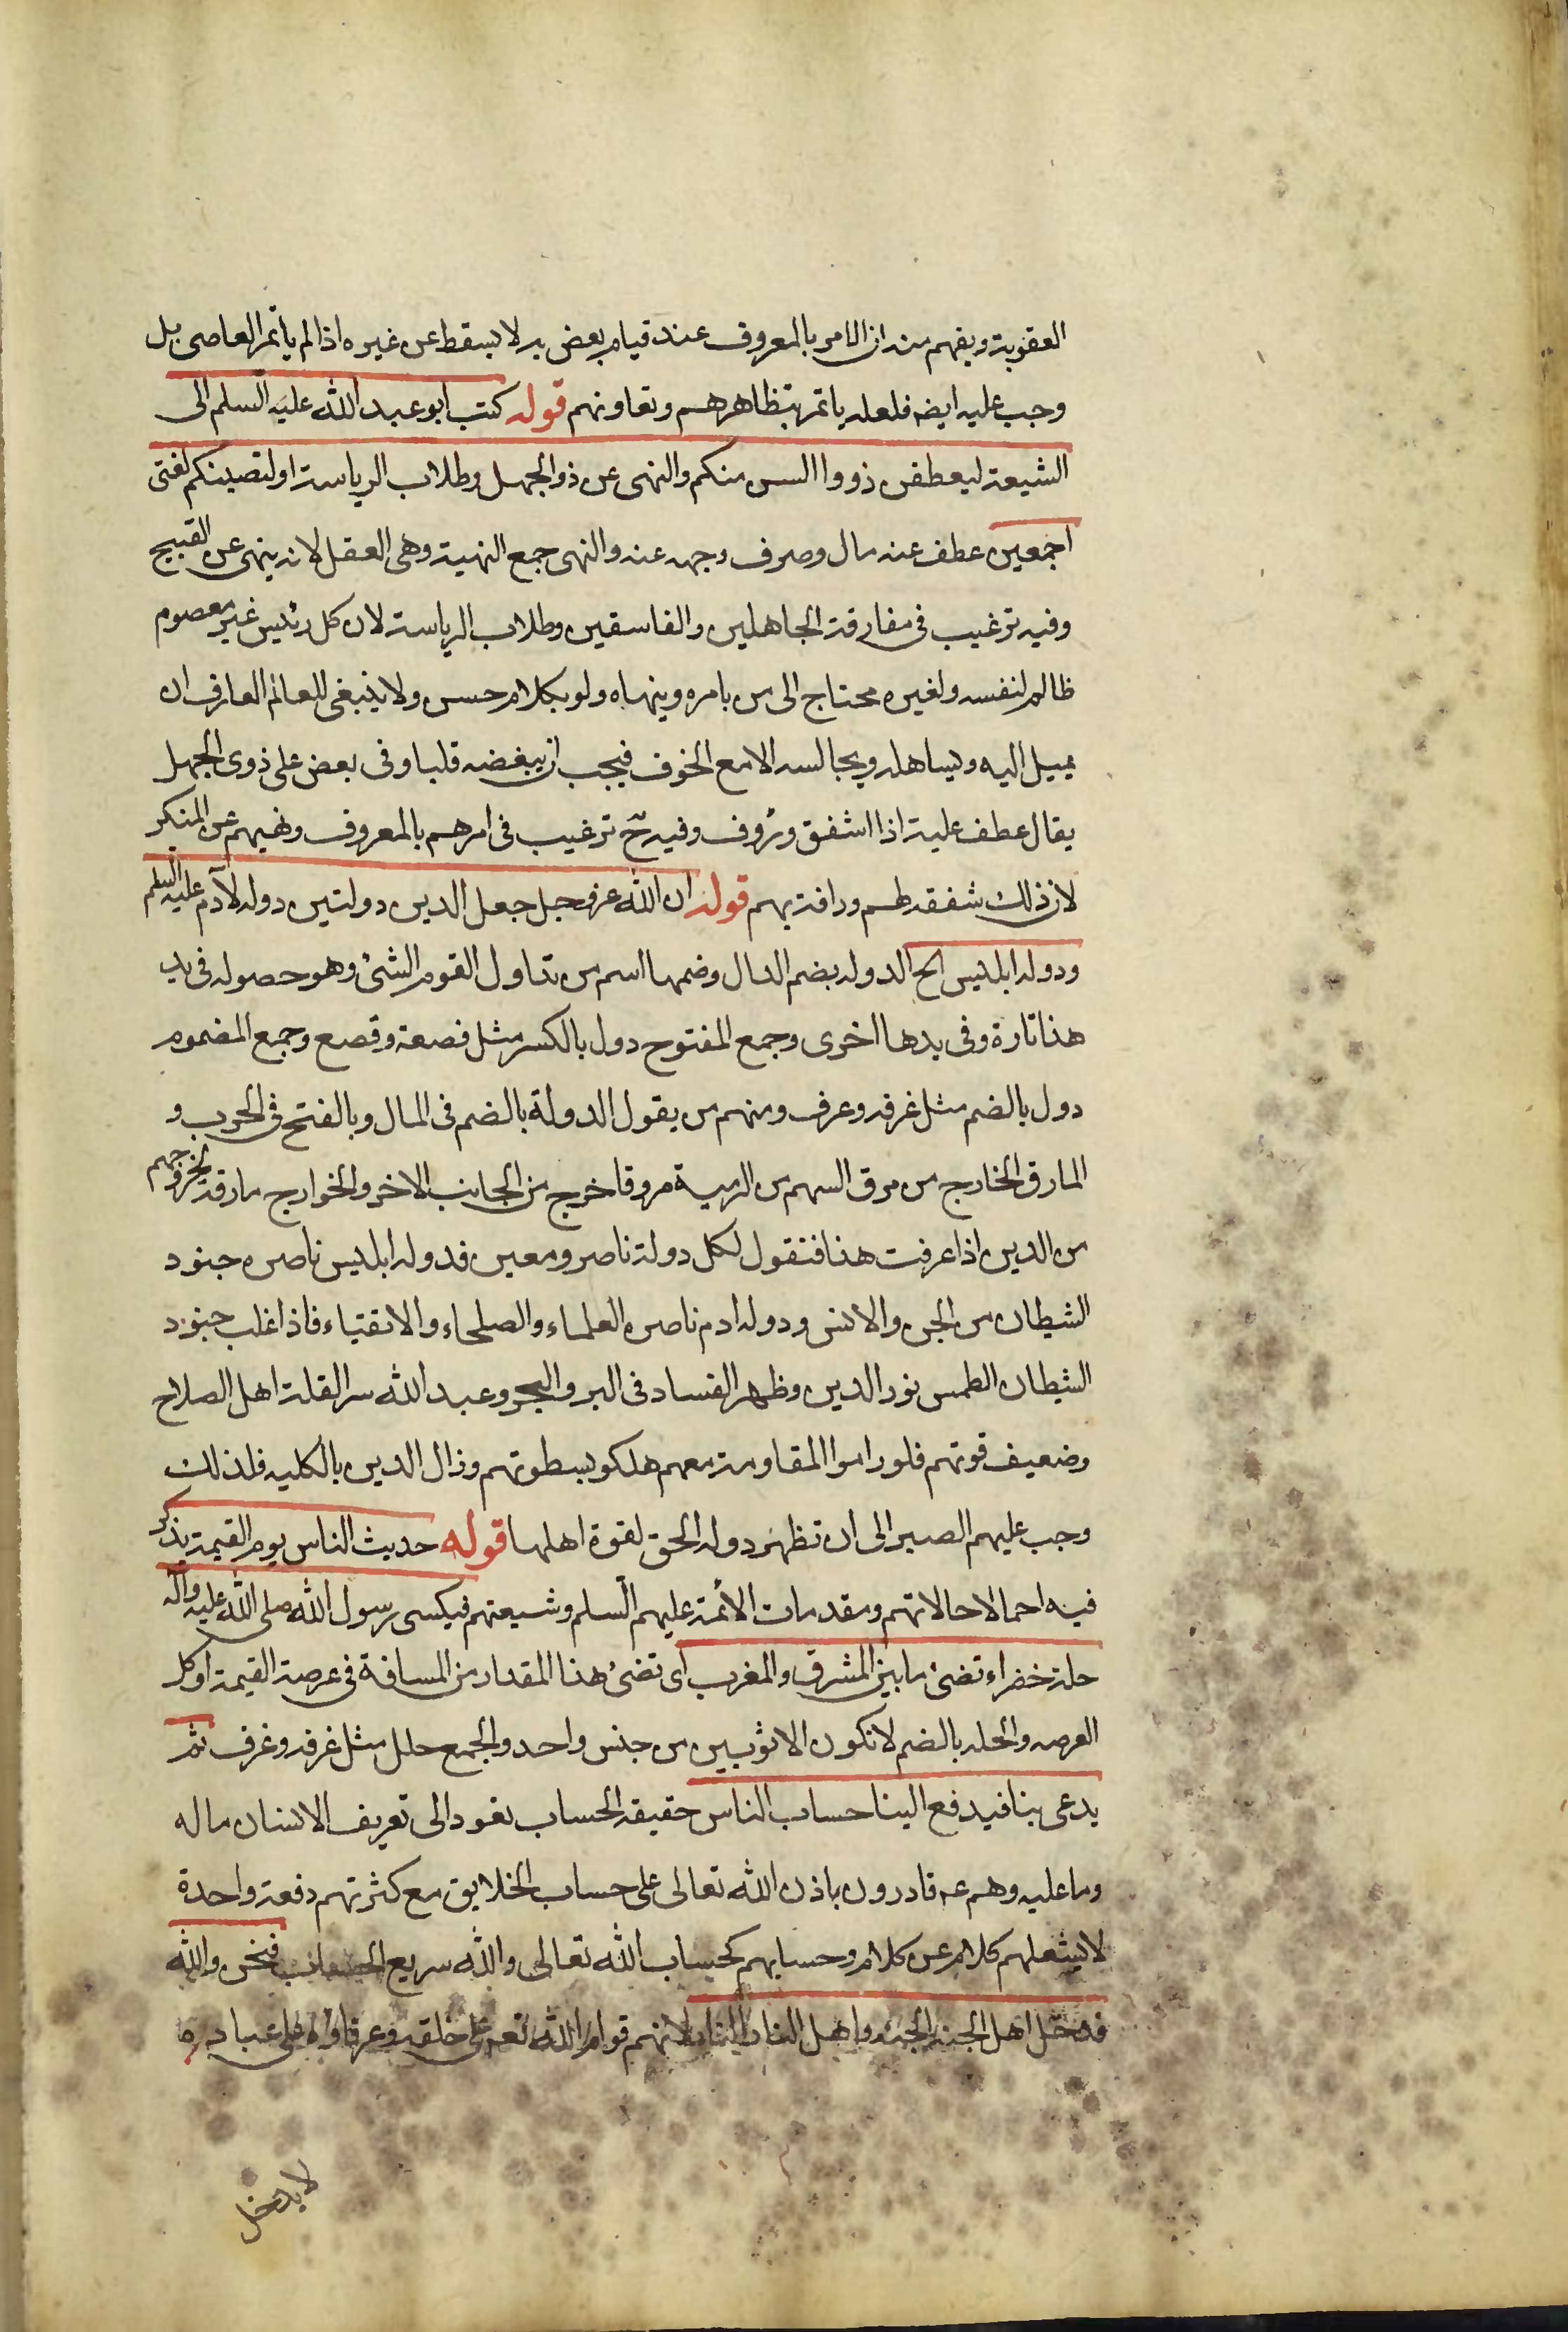 العقوبة ويفهم منه ان الامر بالمعروف عند قيام بعض به لا يسقط عن غيره اذا لم يأتمر العاصى بل
وجب عليه ايضه فلعله ياتمر بتظاهرهم وتعاونهم قوله كتب ابو عبد الله عليه السلم الى
الشيعة ليعطفن ذووا السن منكم والنهى عن ذو الجهل وطلاب الرياسة او لتصيبنكم لغتى
اجمعين عطف عنه مال وصرف وجهه عنه والنهى جمع النهية وهى العقل لانه ينهى عن القبيح
وفيه ترغيب فى مفارقة الجاهلين والفاسقين وطلاب الرياسة لان كل رئيس غير معصوم
ظالم لنفسه ولغيره محتاج الى من يامره وينهاه ولو بكلام حسن ولا ينبغى للعالم العارف ان
يميل اليه ويساهله ويجالسه الا مع الخوف فيجب ان يبغضه قلبا وفى بعض على ذوى الجهل
يقال عطف عليه اذا اشفق ورؤف وفيه ح ترغيب فى امرهم بالمعروف ونهيهم عن المنكر
لان ذلك شفقه لهم ورافة بهم قوله ان الله عز وجل جعل الدين دولتين دوله لآدم عليه السلم
ودوله ابليس الخ الدوله بضم الدال وضمها اسم من تداول القوم الشئ وهو حصوله فى يد
هذا تارة وفى يد هذا اخرى وجمع المفتوح دول بالكسر مثل قصعة وقصع وجمع المضموم
دول بالضم مثل غرفه وعرف ومنهم من يقول الدولة بالضم فى المال وبالفتح فى الحرب و
المارق الخارج من مرق السهم من الرمية مروقا خرج من الجانب الاخر والخوارج مارقة لخروجهم
من الدين اذا عرفت هذا فنقول لكل دولة ناصر ومعين فدوله ابليس ناصره جنود
الشيطان من الجن والانس ودوله ادم ناصره العلماء والصلحاء والاتقياء فاذا غلب جنود
الشيطان الطمس نور الدين وظهر الفساد فى البر والبحر وعبد الله سرا لقلة اهل الصلاح
وضعيف قوتهم فلو راموا المقاومة معهم هلكو بسطوتهم وزال الدين بالكليه فلذلك
وجب عليهم الصبر الى ان تظهر دوله الحق لقوة اهلها قوله حديث الناس يوم القيمة يذكر
فيه احمالا حالاتهم ومقدمات الأئمة عليهم السلم وشيعتهم فيكسى رسول الله صلى الله عليه واله
حلة خضراء تضئ ما بين المشرق والمغرب اى تضئ هذا المقدار من المسافة فى عرصة القيمة او كل
العرصه والحله بالضم لا تكون الا ثوبين من جنس واحد والجمع حلل مثل غرفه وغرف ثم
يدعى بنا فيدفع الينا حساب الناس حقيقه الحساب تعود الى تعريف الانسان ما له
وما عليه وهم عه قادرون باذن الله تعالى على حساب الخلايق مع كثرتهم دفعة واحدة
لا يشغلهم كلام عن كلام وحسابهم كحساب الله تعالى والله سريع الحساب فنحن والله
ندخل اهل الجنه الجنه واهل النار النار لانهم قوام الله تعه على خلقه وعرفاؤه على عباده
لا يدخل